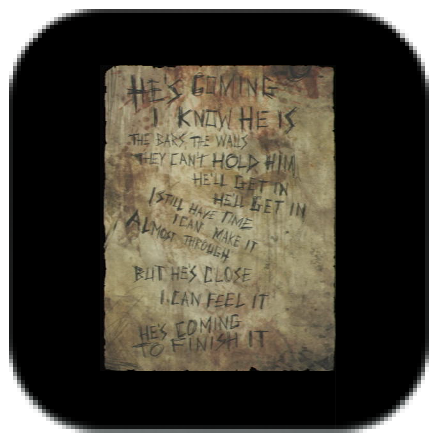 HE'S COMING
I KNOW HE IS
THE BARS, THE WALLS
THEY CAN'T HOLD HIM
HE'LL GET IN
HE'LL GET IN
I STILL HAVE TIME
I CAN MAKE IT
ALMOST THROUGH
BUT HE'S CLOSE
I CAN FEEL IT
HE'S COMING
TO FINISH IT